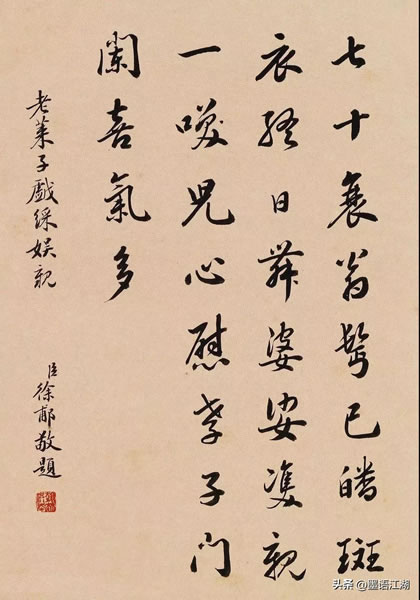 七十衰翁鬢已皤斑
衣終日舞婆娑雙親
一咲兒心慰孝子門
闌喜氣多
老萊子戲綵娛親
臣徐郙敬題
头条@墨语江湖